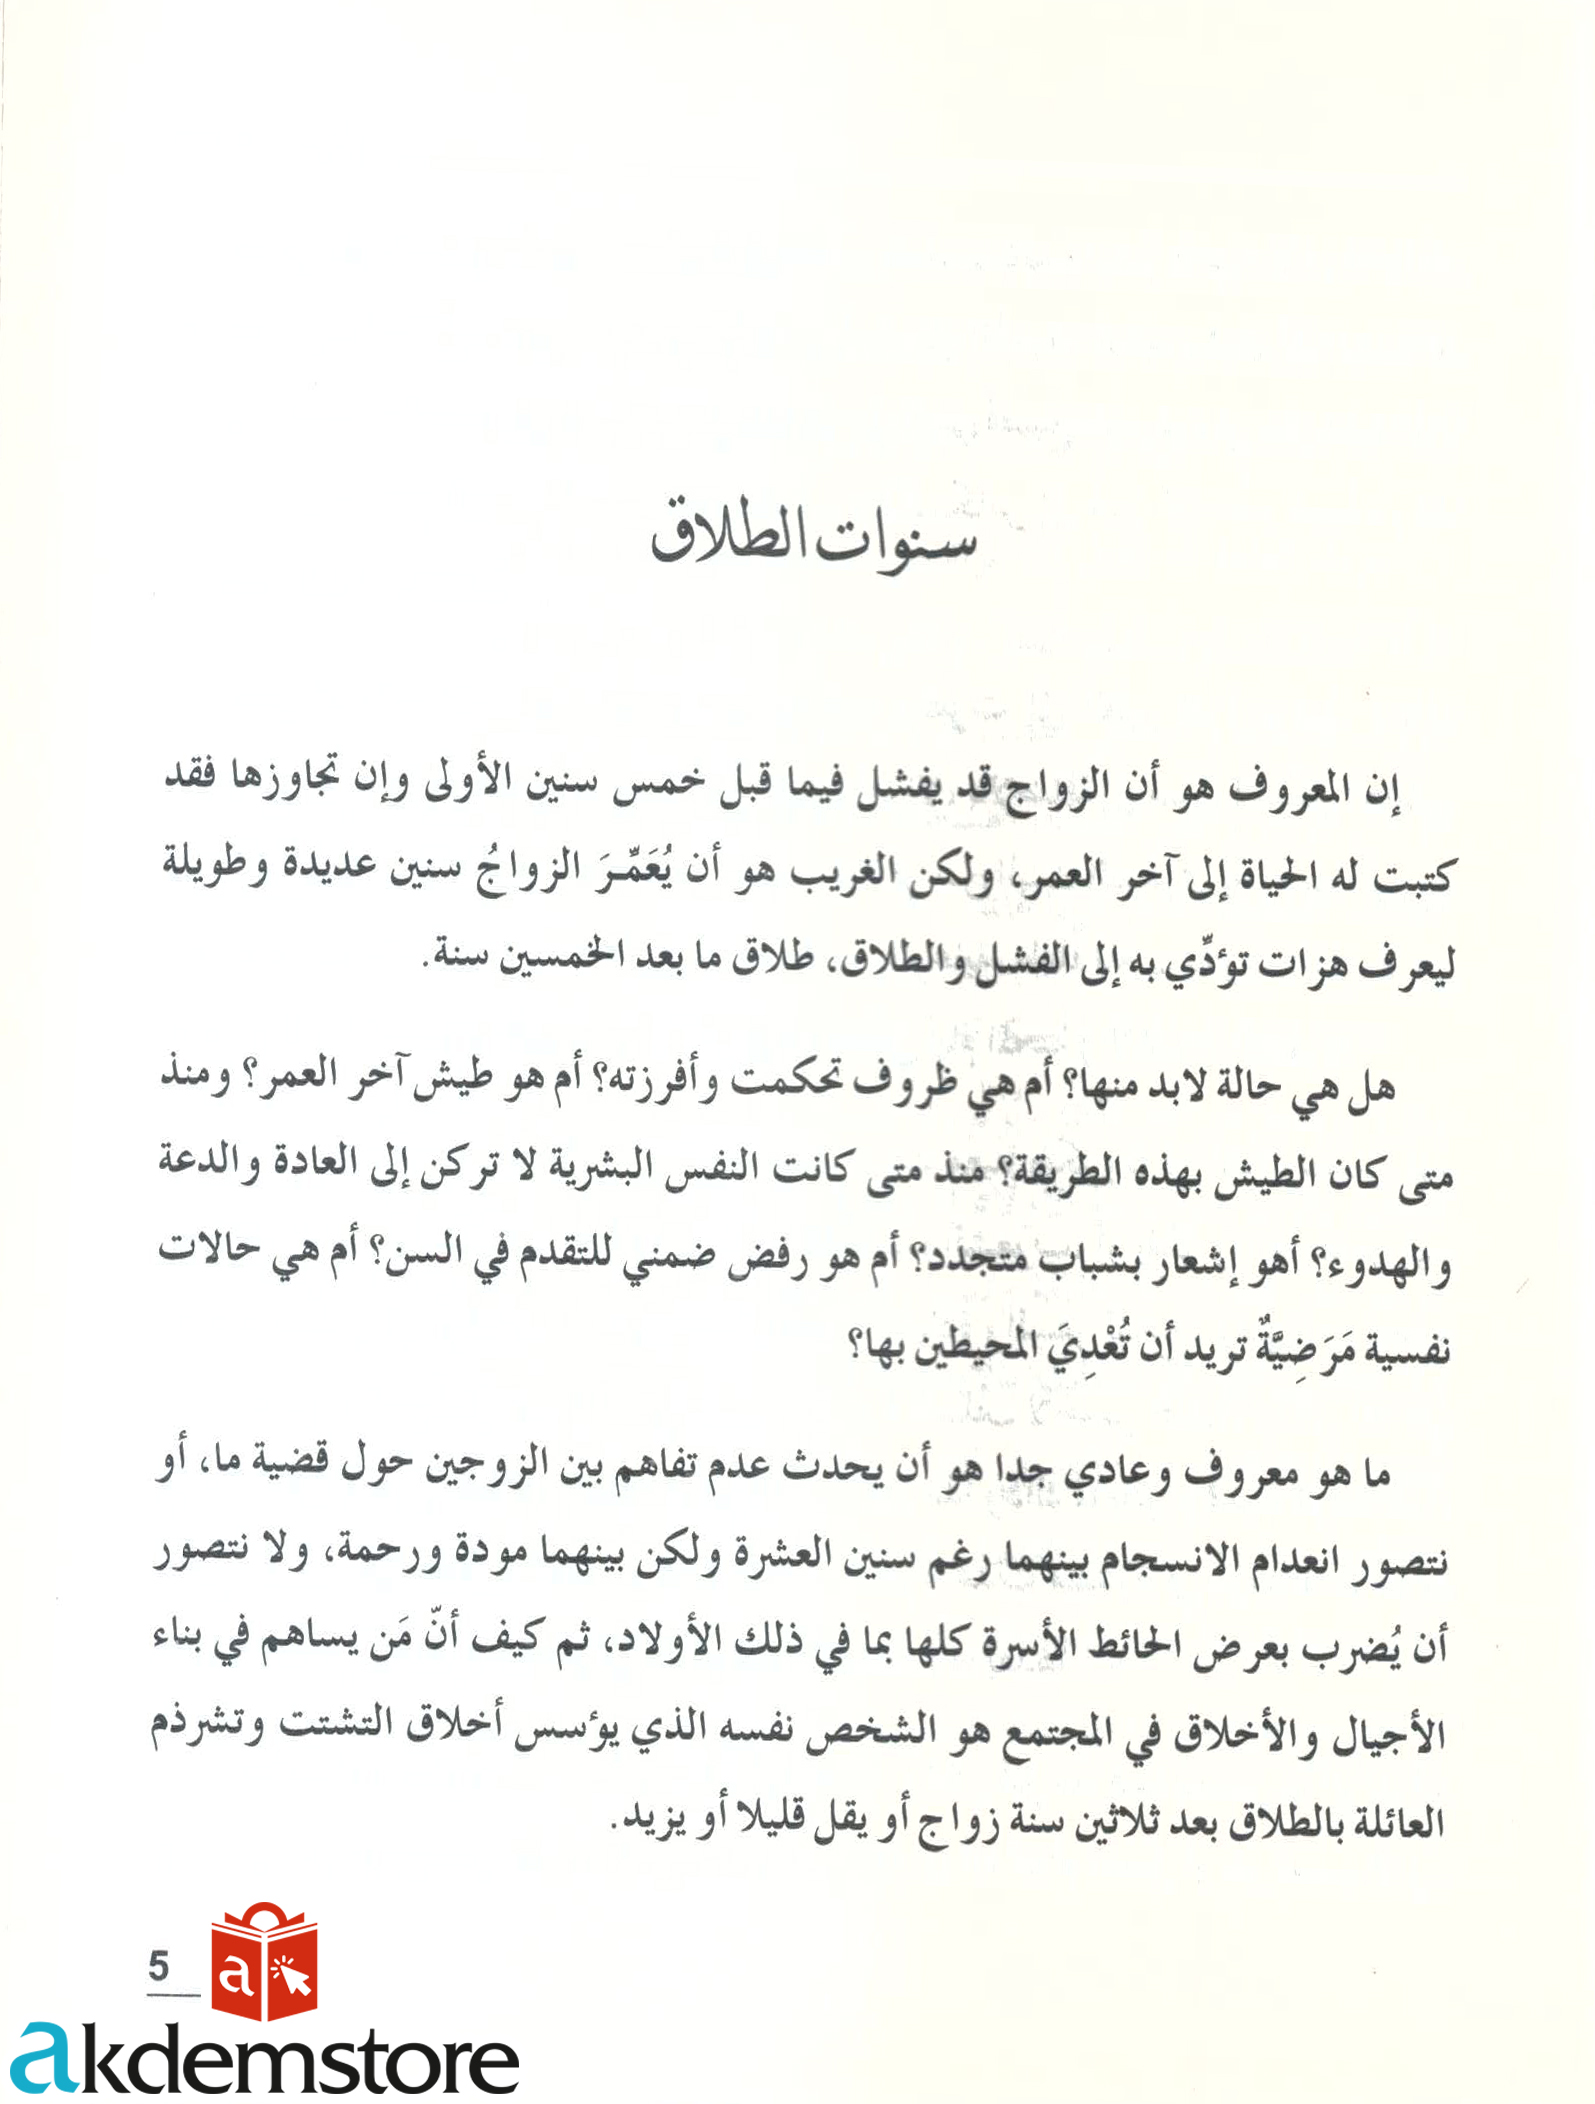 سنوات الطلاق
إن المعروف هو أن الزواج قد يفشل فيما قبل خمس سنين الأولى وإن تجاوزها فقد
كتبت له الحياة إلى آخر العمر، ولكن الغريب هو أن يُعَمِّرَ الزواجُ سنين عديدة وطويلة
ليعرف هزات تؤدِّي به إلى الفشل والطلاق، طلاق ما بعد الخمسين سنة.
هل هي حالة لابد منها؟ أم هي ظروف تحكمت وأفرزته؟ أم هو طيش آخر العمر؟ ومنذ
متى كان الطيش بهذه الطريقة؟ منذ متى كانت النفس البشرية لا تركن إلى العادة والدعة
والهدوء؟ أهو إشعار بشباب متجدد؟ أم هو رفض ضمني للتقدم في السن؟ أم هي حالات
نفسية مَرَضِيَّةٌ تريد أن تُعْدِيَ المحيطين بها؟
ما هو معروف وعادي جدا هو أن يحدث عدم تفاهم بين الزوجين حول قضية ما، أو
نتصور انعدام الانسجام بينهما رغم سنين العشرة ولكن بينهما مودة ورحمة، ولا نتصور
أن يُضرب بعرض الحائط الأسرة كلها بما في ذلك الأولاد، ثم كيف أنّ مَن يساهم في بناء
الأجيال والأخلاق في المجتمع هو الشخص نفسه الذي يؤسس أخلاق التشتت وتشرذم
العائلة بالطلاق بعد ثلاثين سنة زواج أو يقل قليلا أو يزيد.
5
a
akdemstore